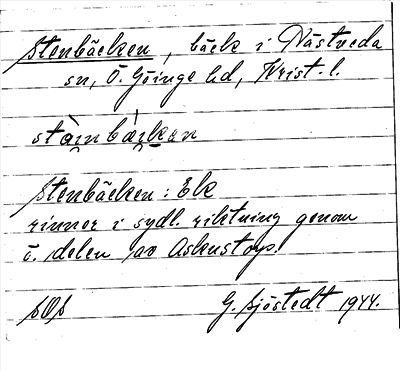 Stenbäcken, bäck i Nästveda
sn, Ö. Göinge hd, Krist. l.
stàinbàikan
Stenbäcken: Ek
rinner i sydl. riktning genom
ö. delen av Askestorp.
G. Sjöstedt 1944.